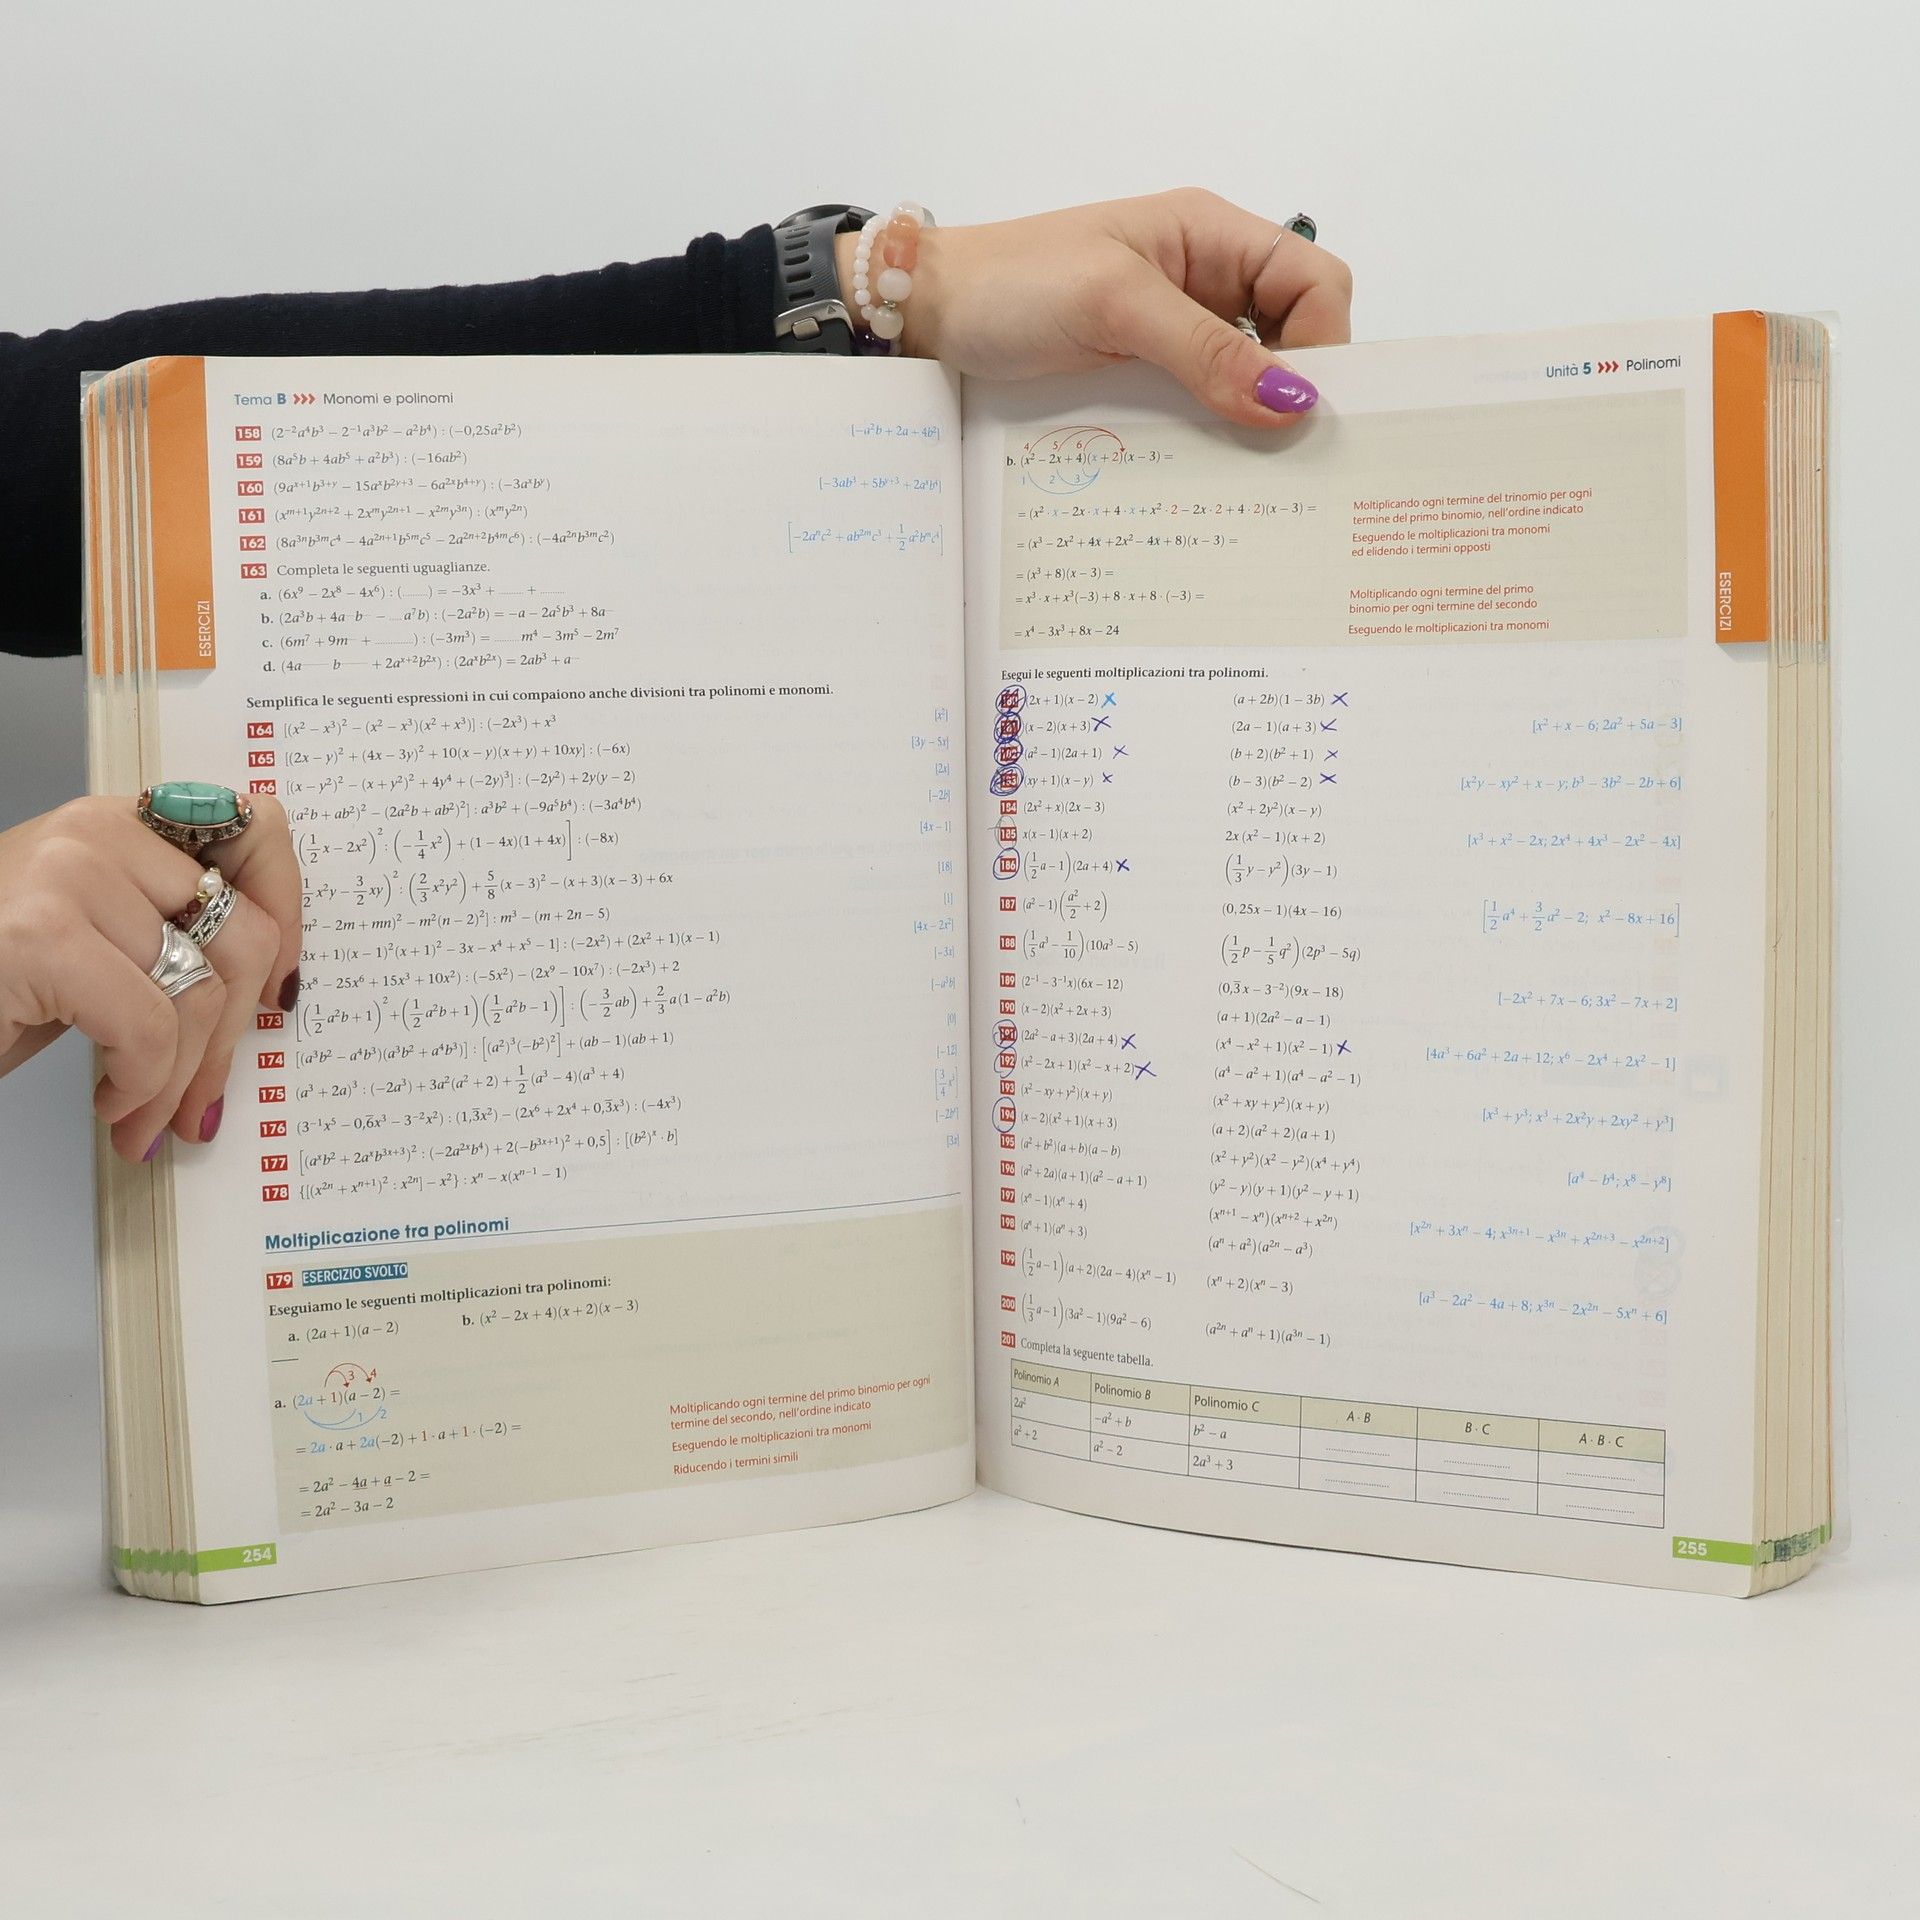 Tema B ››› Monomi e polinomi
158 (2⁻²a⁴b³ − 2⁻¹a³b² − a²b⁴) : (−0,25a²b²) [−a²b + 2a + 4b²]
159 (8a⁵b + 4ab⁵ + a²b³) : (−16ab²)
160 (9aˣ⁺¹b³⁺ʸ − 15aˣb²ʸ⁺³ − 6a²ˣb⁴⁺ʸ) : (−3aˣbʸ) [−3ab³ + 5bʸ⁺³ + 2aˣb⁴]
161 (xᵐ⁺¹y²ⁿ⁺² + 2xᵐy²ⁿ⁺¹ − x²ᵐy³ⁿ) : (xᵐy²ⁿ)
162 (8a³ⁿb³ᵐc⁴ − 4a²ⁿ⁺¹b⁵ᵐc⁵ − 2a²ⁿ⁺²b⁴ᵐc⁶) : (−4a²ⁿb³ᵐc²) [−2aⁿc² + ab²ᵐc³ + 1/2 a²bᵐc⁴]
163 Completa le seguenti uguaglianze.
a. (6x⁹ − 2x⁸ − 4x⁶) : (........) = −3x³ + ........ + ........
b. (2a³b + 4a b − .... a⁷b) : (−2a²b) = −a − 2a⁵b³ + 8a
c. (6m⁷ + 9m + ............) : (−3m³) = ........ m⁴ − 3m⁵ − 2m⁷
d. (4a b + 2aˣ⁺²b²ˣ) : (2aˣb²ˣ) = 2ab³ + a
ESERCIZI
Semplifica le seguenti espressioni in cui compaiono anche divisioni tra polinomi e monomi.
164 [(x² − x³)² − (x² − x³)(x² + x³)] : (−2x³) + x³ [x²]
165 [(2x − y)² + (4x − 3y)² + 10(x − y)(x + y) + 10xy] : (−6x) [3y − 5x]
166 [(x − y²)² − (x + y²)² + 4y⁴ + (−2y)³] : (−2y²) + 2y(y − 2) [2x]
[(a²b + ab²)² − (2a²b + ab²)²] : a³b² + (−9a⁵b⁴) : (−3a⁴b⁴) [−2b]
[(1/2 x − 2x²)² : (−1/4 x²) + (1 − 4x)(1 + 4x)] : (−8x) [4x − 1]
1/2 x²y − 3/2 xy)² : (2/3 x²y²) + 5/8 (x − 3)² − (x + 3)(x − 3) + 6x [18]
m² − 2m + mn)² − m²(n − 2)²] : m³ − (m + 2n − 5) [1]
3x + 1)(x − 1)²(x + 1)² − 3x − x⁴ + x⁵ − 1] : (−2x²) + (2x² + 1)(x − 1) [4x − 2x²]
5x⁸ − 25x⁶ + 15x³ + 10x²) : (−5x²) − (2x⁹ − 10x⁷) : (−2x³) + 2 [−3x]
173 [(1/2 a²b + 1)² + (1/2 a²b + 1)(1/2 a²b − 1)] : (−3/2 ab) + 2/3 a(1 − a²b) [−a³b]
174 [(a³b² − a⁴b³)(a³b² + a⁴b³)] : [(a²)³(−b²)²] + (ab − 1)(ab + 1) [0]
175 (a³ + 2a)³ : (−2a³) + 3a²(a² + 2) + 1/2 (a³ − 4)(a³ + 4) [−12]
176 (3⁻¹x⁵ − 0,6̅x³ − 3⁻²x²) : (1,3̅x²) − (2x⁶ + 2x⁴ + 0,3̅x³) : (−4x³) [3/4 x³]
177 [(aˣb² + 2aˣb³ˣ⁺³)² : (−2a²ˣb⁴) + 2(−b³ˣ⁺¹)² + 0,5] : [(b²)ˣ · b]
178 {[(x²ⁿ + xⁿ⁺¹)² : x²ⁿ] − x²} : xⁿ − x(xⁿ⁻¹ − 1) [3x]
Moltiplicazione tra polinomi
179 ESERCIZIO SVOLTO
Eseguiamo le seguenti moltiplicazioni tra polinomi:
a. (2a + 1)(a − 2) b. (x² − 2x + 4)(x + 2)(x − 3)
3 4
a. (2a + 1)(a − 2) =
1 2
= 2a · a + 2a(−2) + 1 · a + 1 · (−2) = Moltiplicando ogni termine del primo binomio per ogni
termine del secondo, nell'ordine indicato
= 2a² − 4a + a − 2 = Eseguendo le moltiplicazioni tra monomi
= 2a² − 3a − 2 Riducendo i termini simili
254
Unità 5 ››› Polinomi
4 5 6
b. (x² − 2x + 4)(x + 2)(x − 3) =
1 2 3
= (x² · x − 2x · x + 4 · x + x² · 2 − 2x · 2 + 4 · 2)(x − 3) = Moltiplicando ogni termine del trinomio per ogni
termine del primo binomio, nell'ordine indicato
= (x³ − 2x² + 4x + 2x² − 4x + 8)(x − 3) = Eseguendo le moltiplicazioni tra monomi
ed elidendo i termini opposti
= (x³ + 8)(x − 3) =
= x³ · x + x³(−3) + 8 · x + 8 · (−3) = Moltiplicando ogni termine del primo
binomio per ogni termine del secondo
= x⁴ − 3x³ + 8x − 24 Eseguendo le moltiplicazioni tra monomi
ESERCIZI
Esegui le seguenti moltiplicazioni tra polinomi.
(2x + 1)(x − 2) (a + 2b)(1 − 3b)
(x − 2)(x + 3) (2a − 1)(a + 3) [x² + x − 6; 2a² + 5a − 3]
(a² − 1)(2a + 1) (b + 2)(b² + 1)
(xy + 1)(x − y) (b − 3)(b² − 2) [x²y − xy² + x − y; b³ − 3b² − 2b + 6]
184 (2x² + x)(2x − 3) (x² + 2y²)(x − y)
185 x(x − 1)(x + 2) 2x(x² − 1)(x + 2) [x³ + x² − 2x; 2x⁴ + 4x³ − 2x² − 4x]
186 (1/2 a − 1)(2a + 4) (1/3 y − y²)(3y − 1)
187 (a² − 1)(a²/2 + 2) (0,25x − 1)(4x − 16) [1/2 a⁴ + 3/2 a² − 2; x² − 8x + 16]
188 (1/5 a³ − 1/10)(10a³ − 5) (1/2 p − 1/5 q²)(2p³ − 5q)
189 (2⁻¹ − 3⁻¹x)(6x − 12) (0,3̅x − 3⁻²)(9x − 18) [−2x² + 7x − 6; 3x² − 7x + 2]
190 (x − 2)(x² + 2x + 3) (a + 1)(2a² − a − 1)
191 (2a² − a + 3)(2a + 4) (x⁴ − x² + 1)(x² − 1) [4a³ + 6a² + 2a + 12; x⁶ − 2x⁴ + 2x² − 1]
192 (x² − 2x + 1)(x² − x + 2) (a⁴ − a² + 1)(a⁴ − a² − 1)
193 (x² − xy + y²)(x + y) (x² + xy + y²)(x + y) [x³ + y³; x³ + 2x²y + 2xy² + y³]
194 (x − 2)(x² + 1)(x + 3) (a + 2)(a² + 2)(a + 1)
195 (a² + b²)(a + b)(a − b) (x² + y²)(x² − y²)(x⁴ + y⁴) [a⁴ − b⁴; x⁸ − y⁸]
196 (a² + 2a)(a + 1)(a² − a + 1) (y² − y)(y + 1)(y² − y + 1)
197 (xⁿ − 1)(xⁿ + 4) (xⁿ⁺¹ − xⁿ)(xⁿ⁺² + x²ⁿ) [x²ⁿ + 3xⁿ − 4; x³ⁿ⁺¹ − x³ⁿ + x²ⁿ⁺³ − x²ⁿ⁺²]
198 (aⁿ + 1)(aⁿ + 3) (aⁿ + a²)(a²ⁿ − a³)
199 (1/2 a − 1)(a + 2)(2a − 4)(xⁿ − 1) (xⁿ + 2)(xⁿ − 3) [a³ − 2a² − 4a + 8; x³ⁿ − 2x²ⁿ − 5xⁿ + 6]
200 (1/3 a − 1)(3a² − 1)(9a² − 6) (a²ⁿ + aⁿ + 1)(a³ⁿ − 1)
201 Completa la seguente tabella.
Polinomio A Polinomio B Polinomio C A · B B · C A · B · C
2a² −a² + b b² − a ................ ................ ................
a² + 2 a² − 2 2a³ + 3 ................ ................ ................
255